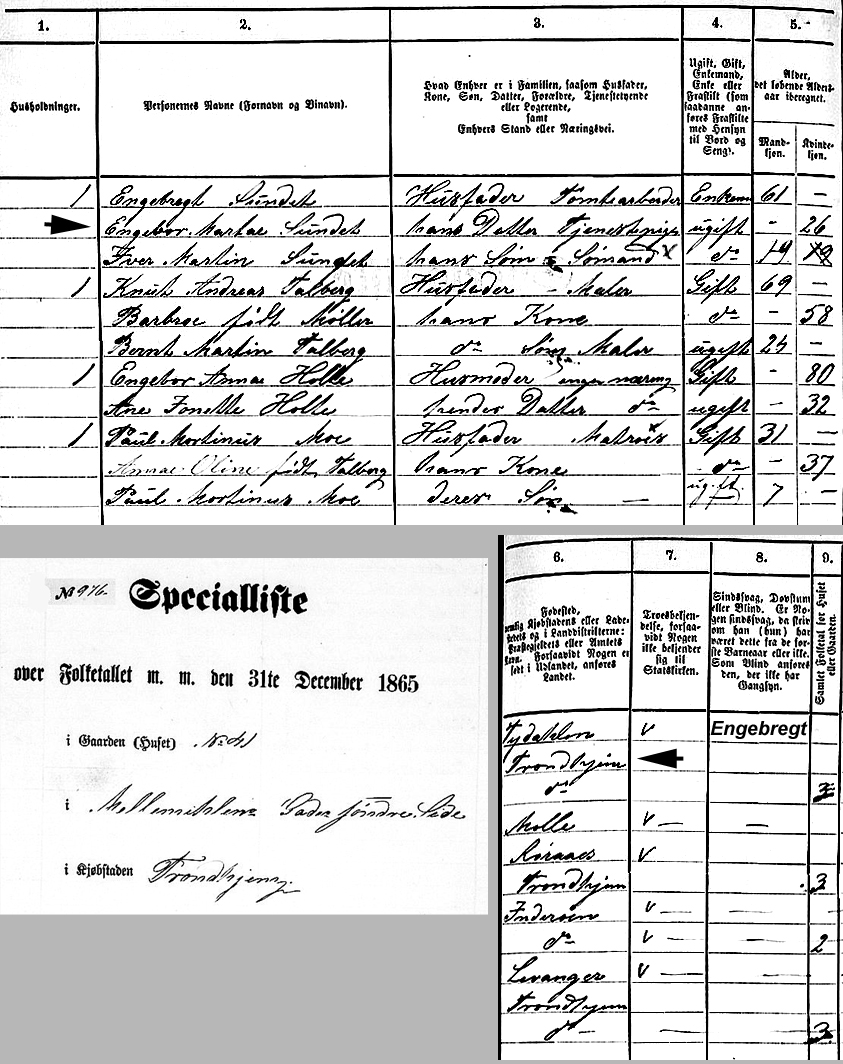 1.
2.
3.
4.
5.
Husholdninger.
Personernes Navne (Fornavn og Binavn).
Hvad Enhver er i Familien, saasom Husfader,
Kone, Søn, Datter, Forældre, Tjenestetyende
eller Logerende,
samt
Enhvers Stand eller Næringsvei.
Ugift, Gift,
Enkemand,
Enke eller
Fraskilt (som
saadanne an-
føres Fraskilte
med Hensyn
til Bord og
Seng).
Alder,
det løbende Alders-
aar iberegnet.
Mand-
kjøn.
Kvinde-
kjøn.
1 Engebregt Sundet Husfader Tomtearbeider Enkem 61 –
Engebor Martae Sundet hans Datter Tjenestepige ugift - 26
Iver Martin Sundet hans Søn Sømand x do 19 19
1 Knut Andreas Talberg Husfader - Maler Gift 69 –
Barbroe født Møller hans Kone do - 58
Bernt Martin Talberg do Søn Maler ugift 25 –
1 Engebor Annae Holte Husmoder ingen næring Gift - 80
Ane Jonette Holte hendes Datter do ugift - 32
1 Paul Mortinus Moe Husfader Matros x Gift 31 –
Annae Oline født Talberg hans Kone do - 37
Paul Mortinus Moe deres Søn — ugift 7 –
No 976.
Specialliste
over Folketallet m. m. den 31te December 1865
i Gaarden (Huset) No 41
i Mellemilens Gades søndre Side
i Kjøbstaden Trondhjem
6.
7.
8.
9.
Fødested,
nemlig Kjøbstadens eller Lade-
stedets og i Landdistrikterne:
Præstegjeldets eller Amtets
Navn. Forsaavidt Nogen er
født i Udlandet, anføres
Landet.
Troesbekjen-
delse, forsaa-
vidt Nogen
ikke bekjender
sig til
Statskirken.
Sindssvag, Døvstum
eller Blind. Er No-
gen sindssvag, da skriv
om han (hun) har
været dette fra de før-
ste Barneaar eller ikke.
Som Blind anføres
den, der ikke har
Gangsyn.
Samlet Folketal for Huset
eller Gaarden.
Tydahlen v Engebregt
Trondhjem
do 3
Molle v — —
Røraaes v
Trondhjem 3
Inderøen v — —
do v — — 2
Levanger v — —
Trondhjem
do — — — 3